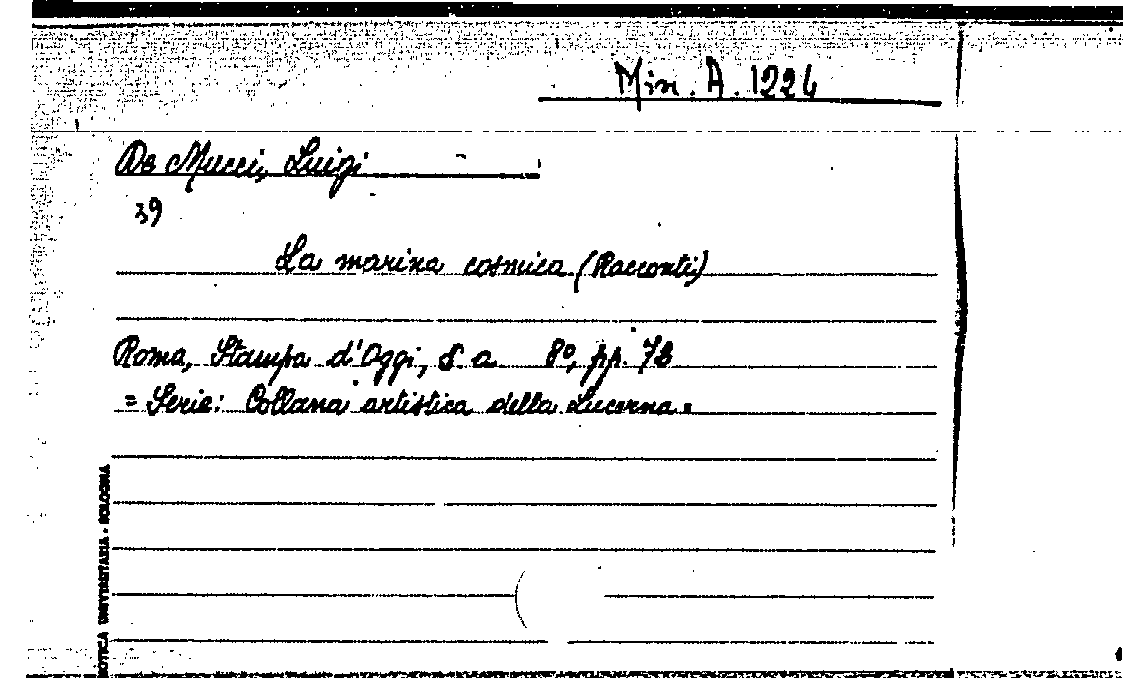 Min. A. 1224
De Mucci, Luigi
39
La marina cosmica (Racconti)
Roma, Stampa d'Oggi, s. a 8º, pp. 73
= Serie: Collana artistica della Lucerna =
UNIVERSITARIA - BOLOGNA